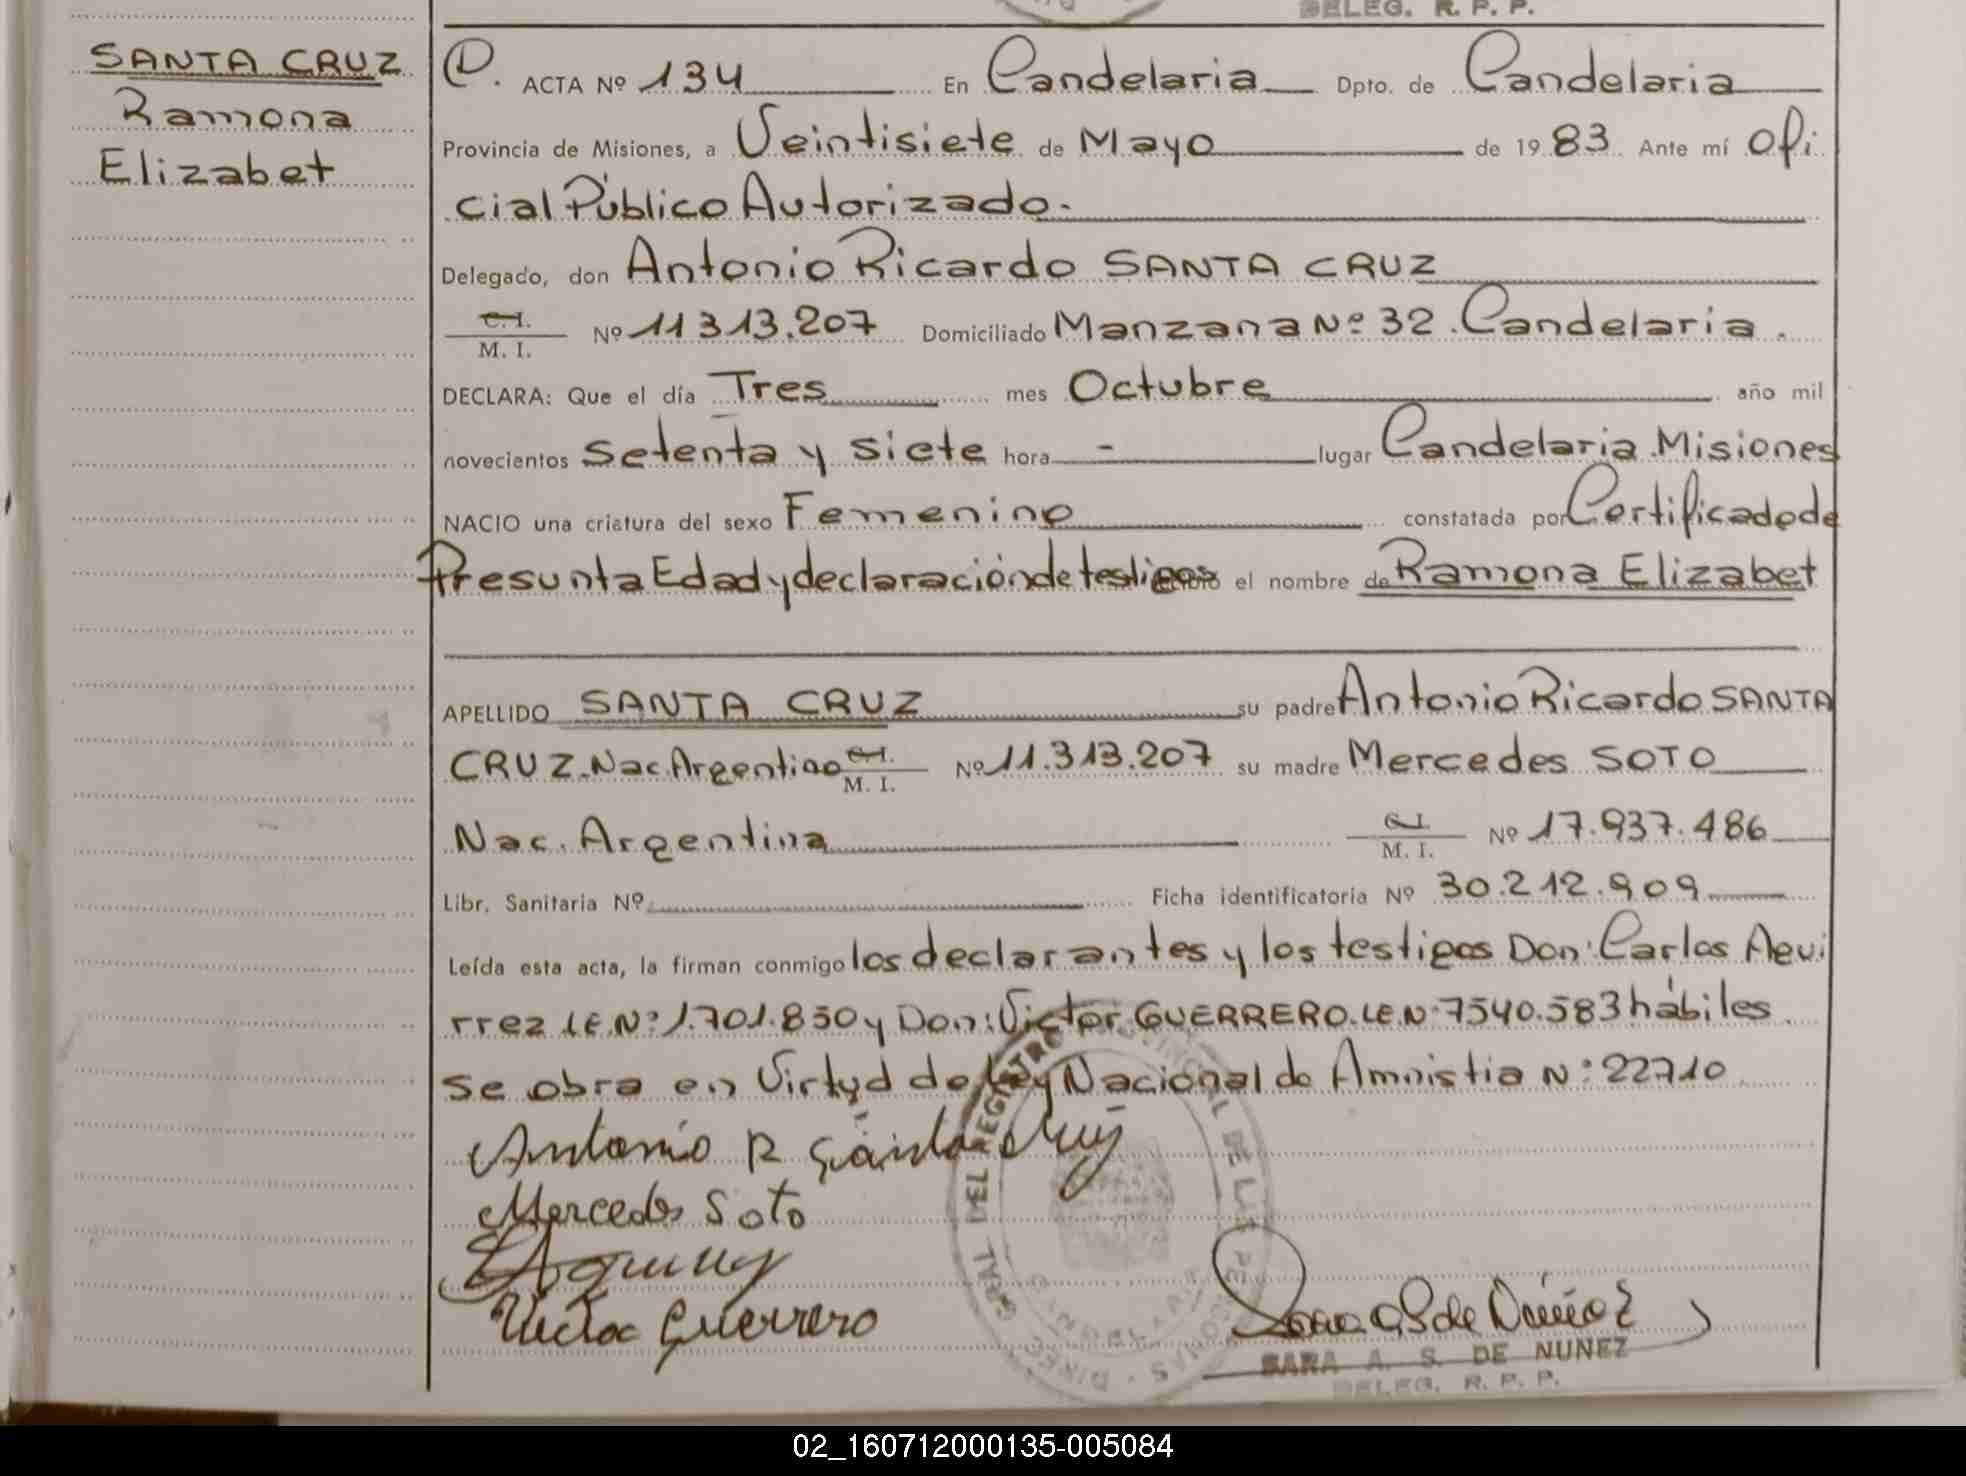 DELEG. R. P. P.
SANTA CRUZ
Ramona
Elizabet
D. ACTA Nº 134 En Candelaria Dpto. de Candelaria
Provincia de Misiones, a Veintisiete de Mayo de 1983 Ante mí Ofi
cial Público Autorizado.
Delegado, don Antonio Ricardo SANTA CRUZ
C. I.
M. I. Nº 11313.207 Domiciliado Manzana Nº 32. Candelaria.
DECLARA: Que el día Tres mes Octubre año mil
novecientos Setenta y Siete hora - lugar Candelaria Misiones
NACIO una criatura del sexo Femenino constatada por Certificado de
Presunta Edad y declaración de testigos el nombre de Ramona Elizabet
APELLIDO SANTA CRUZ su padre Antonio Ricardo SANTA
CRUZ. Nac. Argentino C. I. M. I. Nº 11.313.207 su madre Mercedes SOTO
Nac. Argentina C. I. M. I. Nº 17.937.486
Libr. Sanitaria Nº Ficha identificatoria Nº 30.212.909
Leída esta acta, la firman conmigo los declarantes y los testigos Don: Carlos Agui
rrez LE.Nº 1.701.850 y Don: Victor GUERRERO. LE.Nº 7540.583 hábiles
Se obra en Virtud de Ley Nacional de Amnistia Nº 22710
Antonio R Santa Cruz
Mercedes Soto
Victor Guerrero
SARA A. S. DE NUNEZ
DELEG. R. P. P.
02_160712000135-005084